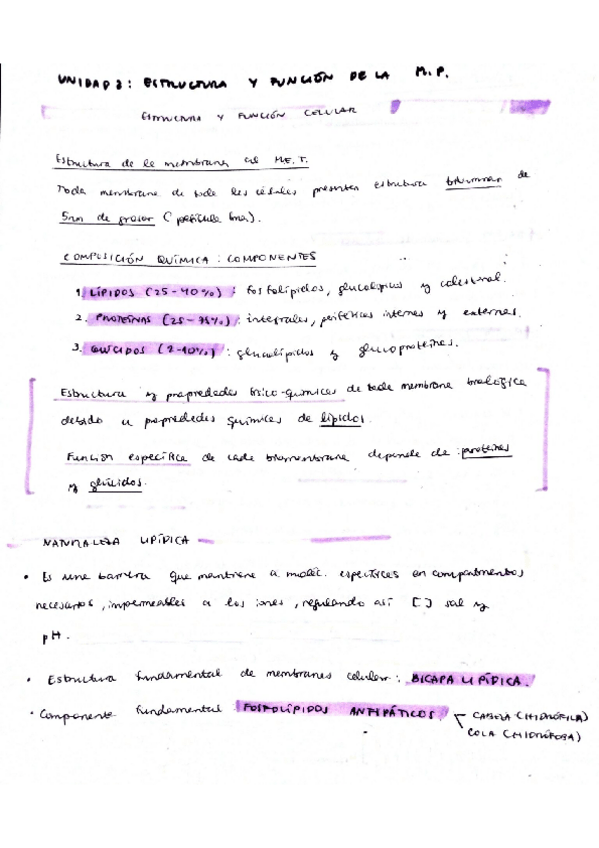 UNIDAD 2: ESTRUCTURA Y FUNCIÓN DE LA M.P.
ESTRUCTURA Y FUNCIÓN CELULAR
Estructura de la membrana al M.E.T.
Toda membrana de toda las células presentan estructura trilaminar de
5nm de grosor (película fina).
COMPOSICIÓN QUÍMICA: COMPONENTES
1. LÍPIDOS (25-40%): fosfolípidos, glucolípidos y colesterol.
2. PROTEÍNAS (25-75%): integrales, periféricas internas y externas.
3. GLÚCIDOS (2-10%): glucolípidos y glucoproteínas.
Estructura y propiedades físico-químicas de toda membrana biológica
debido a propiedades químicas de lípidos.
Función específica de cada biomembrana depende de: proteínas
y glúcidos.
NATURALEZA LIPÍDICA
• Es una barrera que mantiene a moléc. específicas en compartimentos
necesarios, impermeables a los iones, regulando así [ ] sal y
pH.
• Estructura fundamental de membranas celular: BICAPA LIPÍDICA.
• Componente fundamental FOSFOLÍPIDOS ANFIPÁTICOS. CABEZA (HIDRÓFILA)
COLA (HIDRÓFOBA)